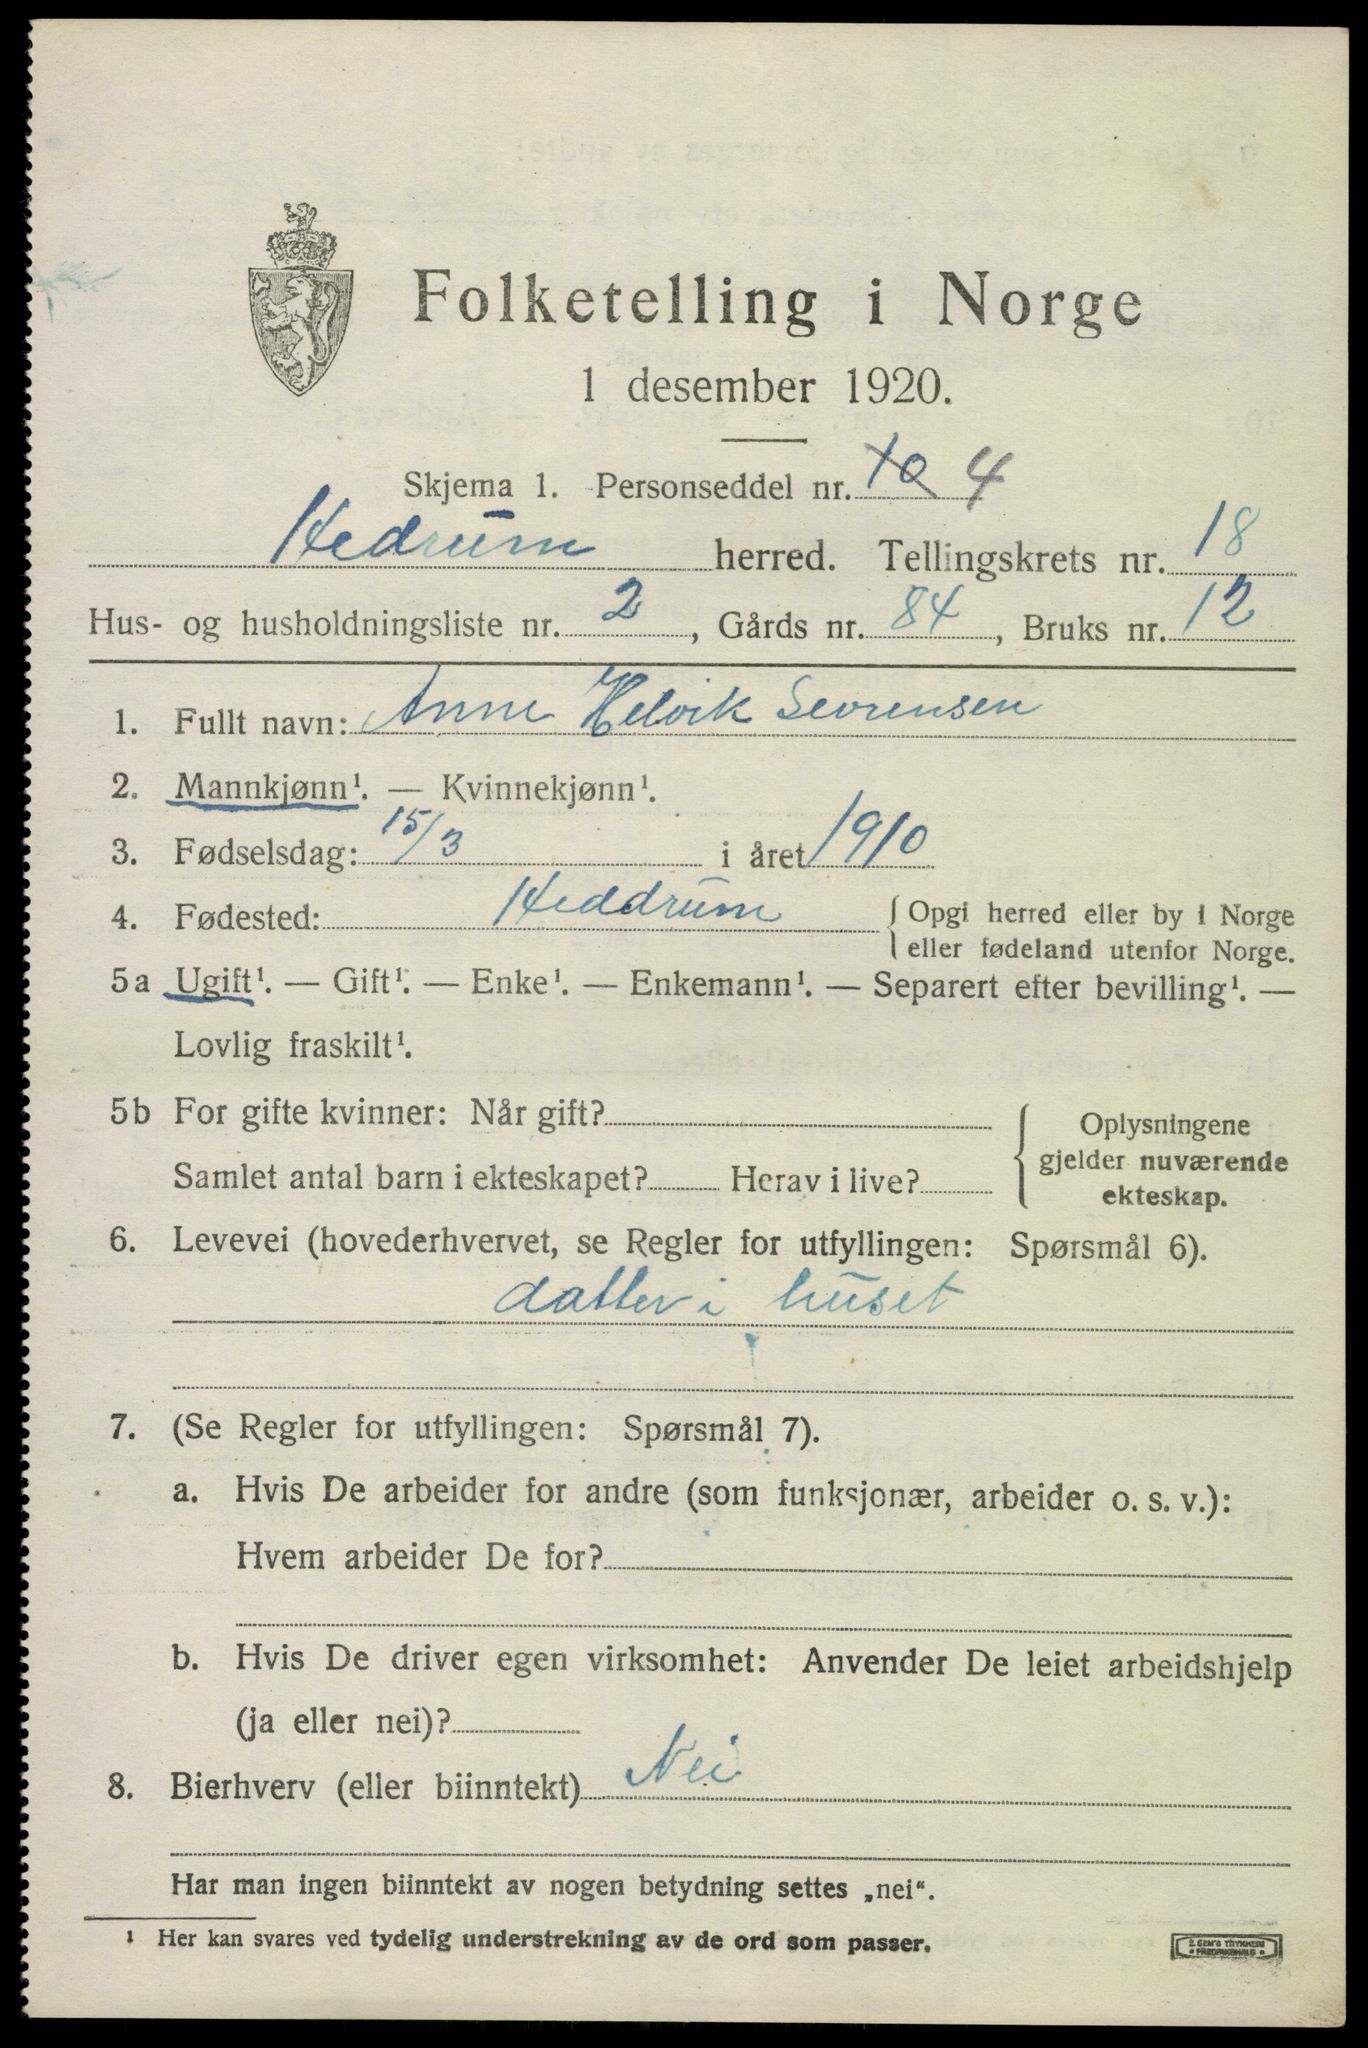 Folketelling i Norge
1 desember 1920.
Skjema 1. Personseddel nr. 10 4
Hedrum herred. Tellingskrets nr. 18
Hus- og husholdningsliste nr. 2, Gårds nr. 84, Bruks nr. 12
1. Fullt navn: Anne Helvik Sevrensen
2. Mannkjønn¹. — Kvinnekjønn¹.
3. Fødselsdag: 15/3 i året 1910
4. Fødested: Heddrum { Opgi herred eller by i Norge
eller fødeland utenfor Norge.
5a Ugift¹. — Gift¹. — Enke¹. — Enkemann¹. — Separert efter bevilling¹. —
Lovlig fraskilt¹.
5b For gifte kvinner: Når gift?
Samlet antal barn i ekteskapet? Herav i live?
{ Oplysningene
gjelder nuværende
ekteskap.
6. Levevei (hovederhvervet, se Regler for utfyllingen: Spørsmål 6).
datter i huset
7. (Se Regler for utfyllingen: Spørsmål 7).
a. Hvis De arbeider for andre (som funksjonær, arbeider o. s. v.):
Hvem arbeider De for?
b. Hvis De driver egen virksomhet: Anvender De leiet arbeidshjelp
(ja eller nei)?
8. Bierhverv (eller biinntekt) Nei
Har man ingen biinntekt av nogen betydning settes „nei“.
¹ Her kan svares ved tydelig understrekning av de ord som passer.